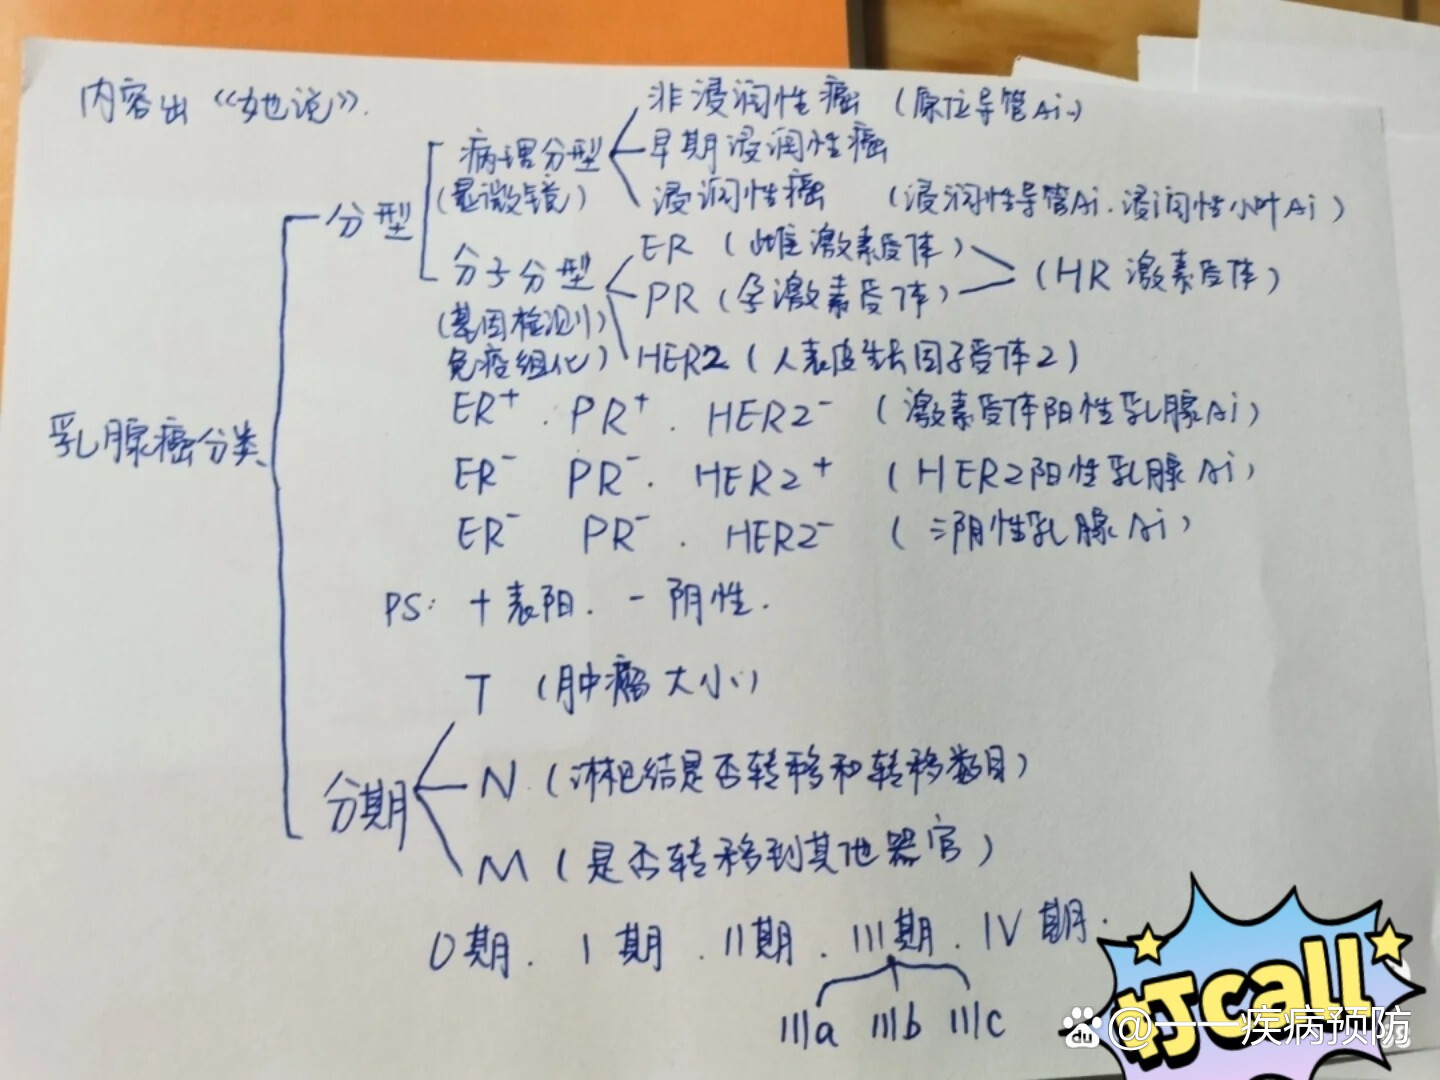 内容出《她说》.
非浸润性癌 (原位导管Ai.)
病理分型
早期浸润性癌
(显微镜)
浸润性癌 (浸润性导管Ai.浸润性小叶Ai)
分型
ER (雌激素受体)
分子分型
PR (孕激素受体)
(HR 激素受体)
(基因检测
免疫组化)
HER2 (人表皮生长因子受体2)
ER+ . PR+ . HER2- (激素受体阳性乳腺Ai)
乳腺癌分类
ER- PR- . HER2+ (HER2阳性乳腺Ai)
ER- PR- . HER2- (三阴性乳腺Ai)
PS: +表阳. -阴性.
T (肿瘤大小)
分期
N (淋巴结是否转移和转移数目)
M (是否转移到其他器官)
0期. I期. II期. III期. IV期.
IIIa IIIb IIIc
打call
du @一一疾病预防